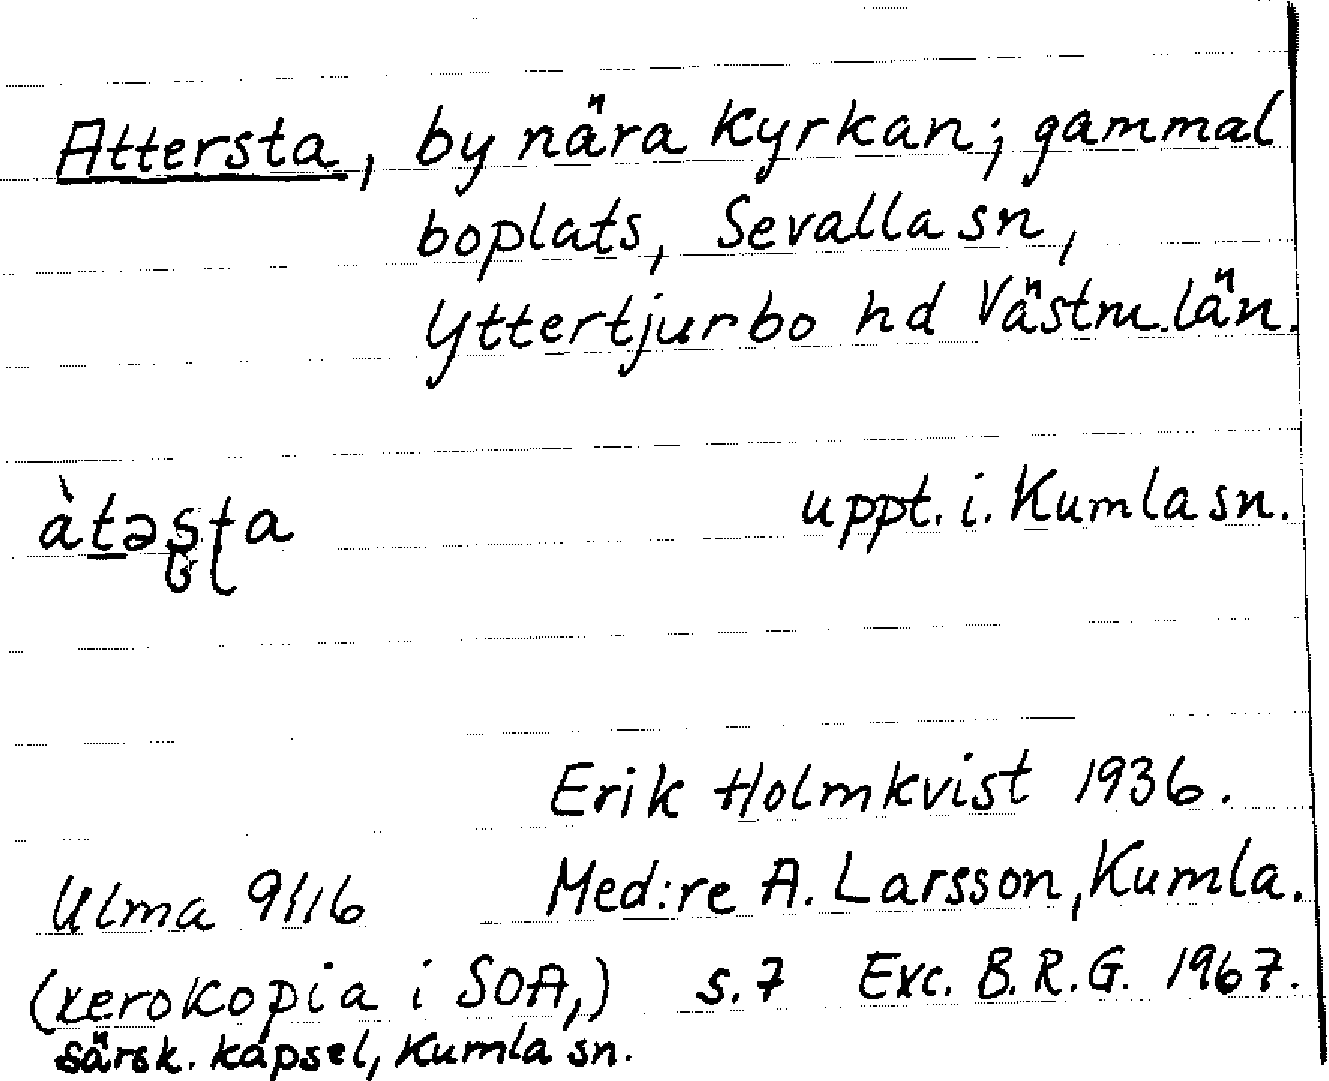 Attersta, by nära kyrkan; gammal
boplats, Sevalla sn,
Yttertjurbo hd Västm. län.
àtəʂʈa uppt. i. Kumla sn.
Erik Holmkvist 1936.
Ulma 91:16 Med:re A. Larsson, Kumla.
(xerokopia i SOA,) s. 7 Exc. B. R. G. 1967.
särsk. kapsel, Kumla sn.